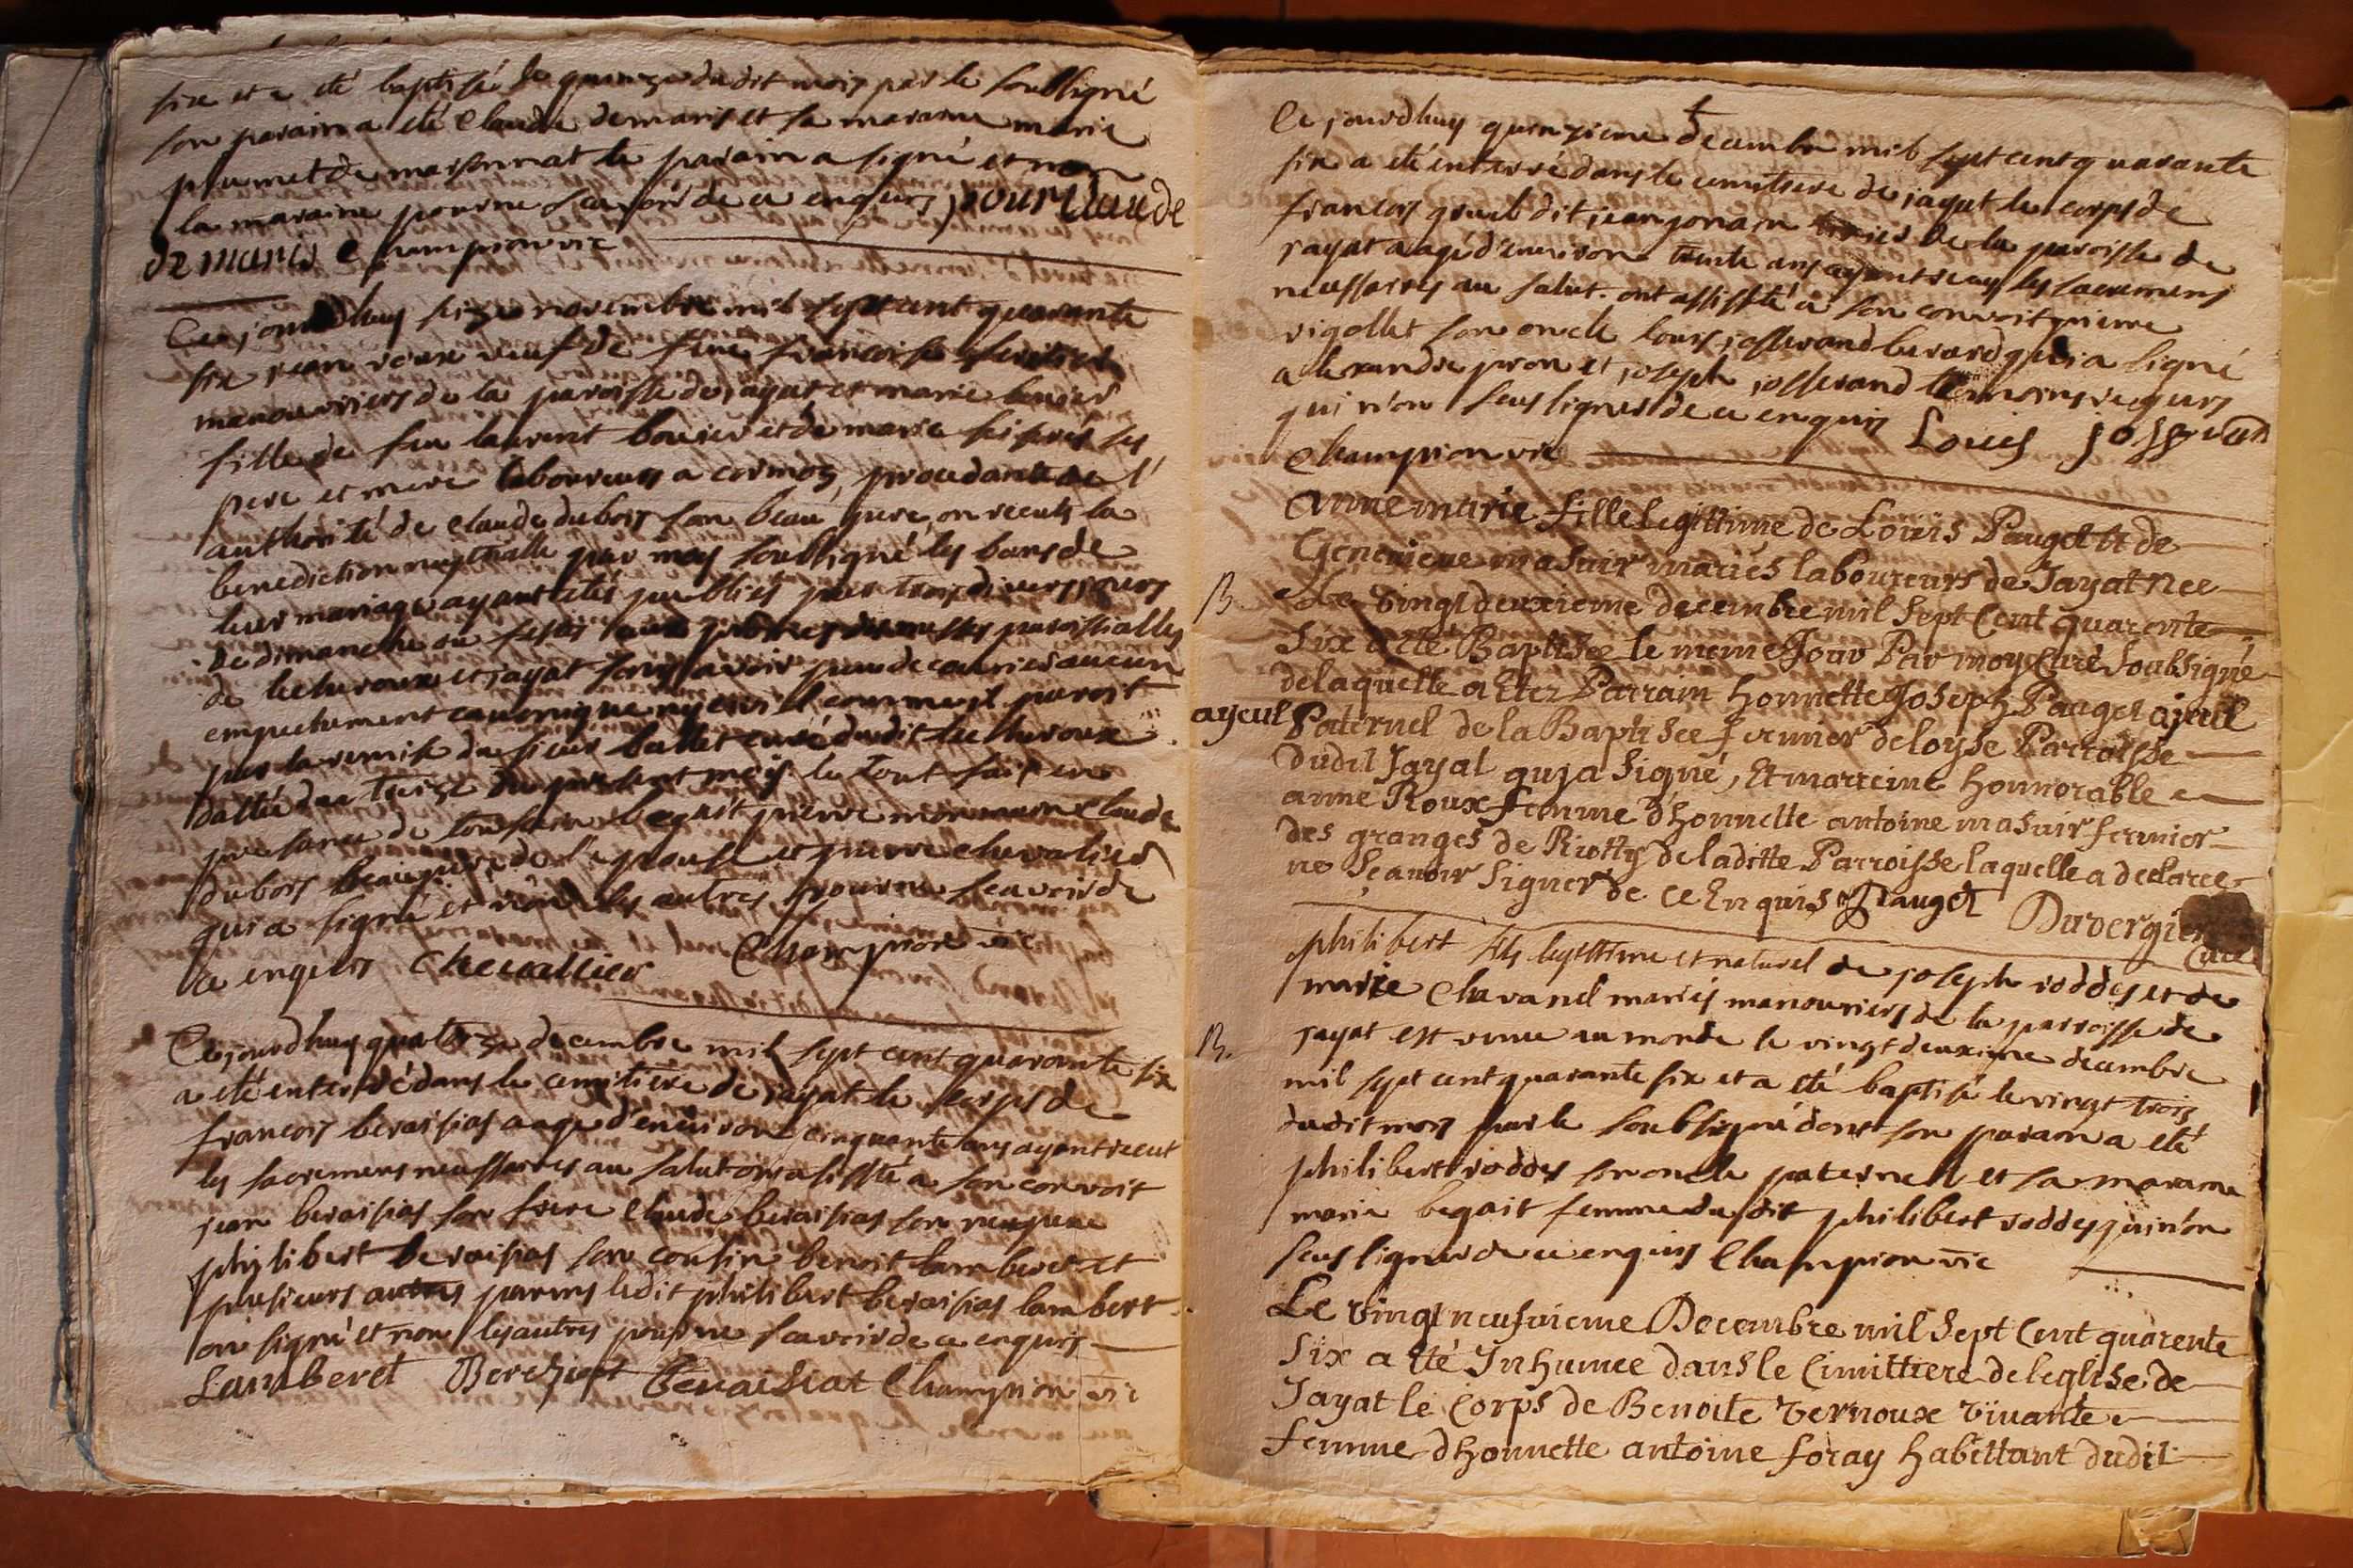 six et a eté baptisé le quinze dudit mois par le soubsigné
son parain a eté Claude demaris et sa maraine marie
plumet de maisonnat le parain a signé et non
la maraine pour ne scavoir de ce enquis pour Claude
demaris Champion vic
Ce jourdhuy seize novembre mil sept cent quarante
six jean roux veuf de feue francoise
manouvriers de la paroisse de jayat et marie bouier
fille de feu laurent bouier et de marie
pere et mere laboureurs a cormoz, procedante de l'
authorité de claude dubois son beau pere, on receuts la
benediction nuptialle par moy soubsigné les bans de
leur mariage ayants etés publiés par trois divers jours
de dimanche ou festes aux prônes des messes paroissialles
de lecheroux et jayat sans avoir peu decouvrir aucun
empechement canonique ny civil comme il paroit
par la remise du sieur ballet curé dudit lecheroux
dattée du treize du present mois le tout fait en
presance de begait pierre claude
dubois beau pere de l'epouse et pierre chevalier
qui a signé et non les autres pour ne scavoir de
ce enquis Chevallier Champion vic
Ce jourdhuy quatorze decembre mil sept cent quarante six
a eté enterré dans le cemitiere de jayat le corps de
francois beraisias aagé d'environ cinquante ans ayant receut
les sacremens necessaires au salut on assisté a son convoit
jean beraisias son frere Claude beraisias son
philibert beraisias son cousin benoit lamberet et
plusieurs autres parens ledit philibert beraisias lambert
on signé et non les autres pour ne scavoir de ce enquis
Lamberet Champion vic
Ce jourdhuy quinzieme decembre mil sept cent quarante
six a eté enterré dans le cemitiere de jayat le corps de
francois de la paroisse de
jayat aagé d'environ trente ans ayant receus les sacremens
necessaires au salut. ont assisté a son convoit pierre
rigollet son oncle louis josserand berard qui a signé
alexandre pron et joseph josserand temoins requis
qui n'on sceu signer de ce enquis Louis josseran
Champion vic
anne marie fille legittime de Louis Pauget et de
Genevieve masuir mariés laboureurs de Jayat nee
B. Le vingt deuxieme decembre mil sept Cent quarente
Six a eté Baptisee le meme Jour Par moy Curé Soubsigné
de laquelle a Etez Parrain honnette Joseph Pauget ajeul
ayeul Paternel de la Baptisee fermier de loyse Parroisse
dudit Jayat quja signé, Et marreine honnorable
anne Roux femme d'honnette antoine masuir fermier
des granges de Riotty de laditte Parroisse laquelle a declaree
ne Sçavoir Signer de ce Enquis Pauget Duvergier
Curé
philibert fils legittime et naturel de joseph roddes et de
marie Chavanel mariés manouvriers de la parroisse de
B. jayat est venue au monde le vingt deuxieme decembre
mil sept cent quarante six et a eté baptisé le vingt trois
dudit mois par le soubsigné dont son parain a eté
philibert roddes son oncle paternel et sa maraine
marie begait femme dudit philibert roddes qui n'on
sceu signer de ce enquis Champion vic
Le vingt neufvieme Decembre mil Sept Cent quarente
Six a eté Inhumee dans le Cimittiere de leglise de
Jayat le Corps de Benoite vernoux vivante
femme d'honnette antoine foray habittant dudit